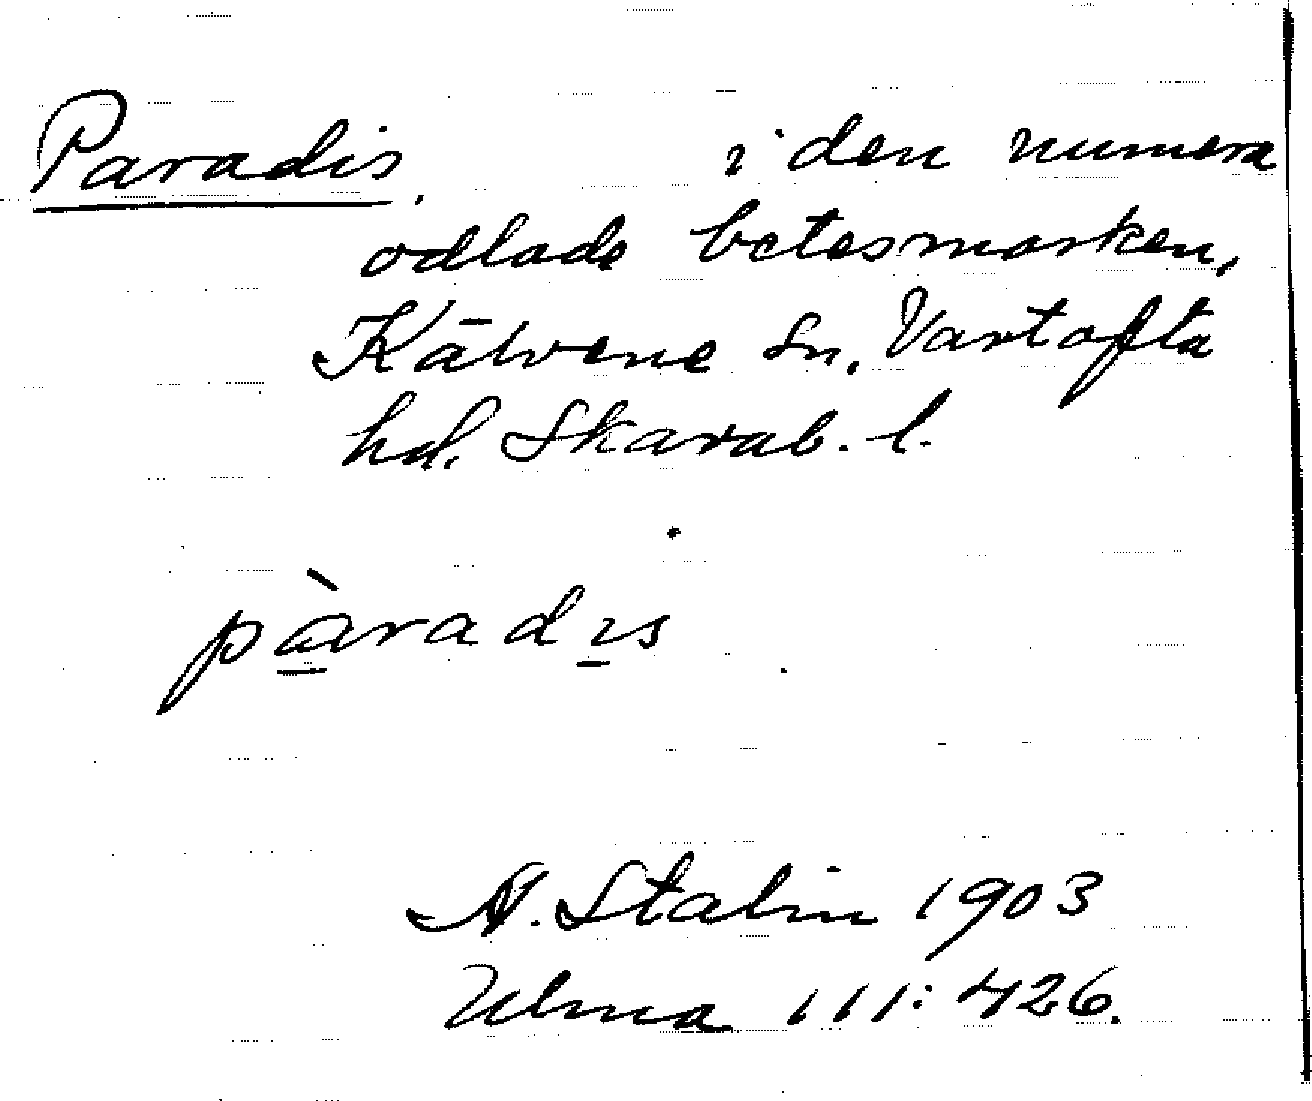 Paradis, i den numera
odlade betesmarken,
Kälvene sn, Vartofta
hd. Skarab. l.
pàradıs
A. Stalin 1903
Ulma 111:426.